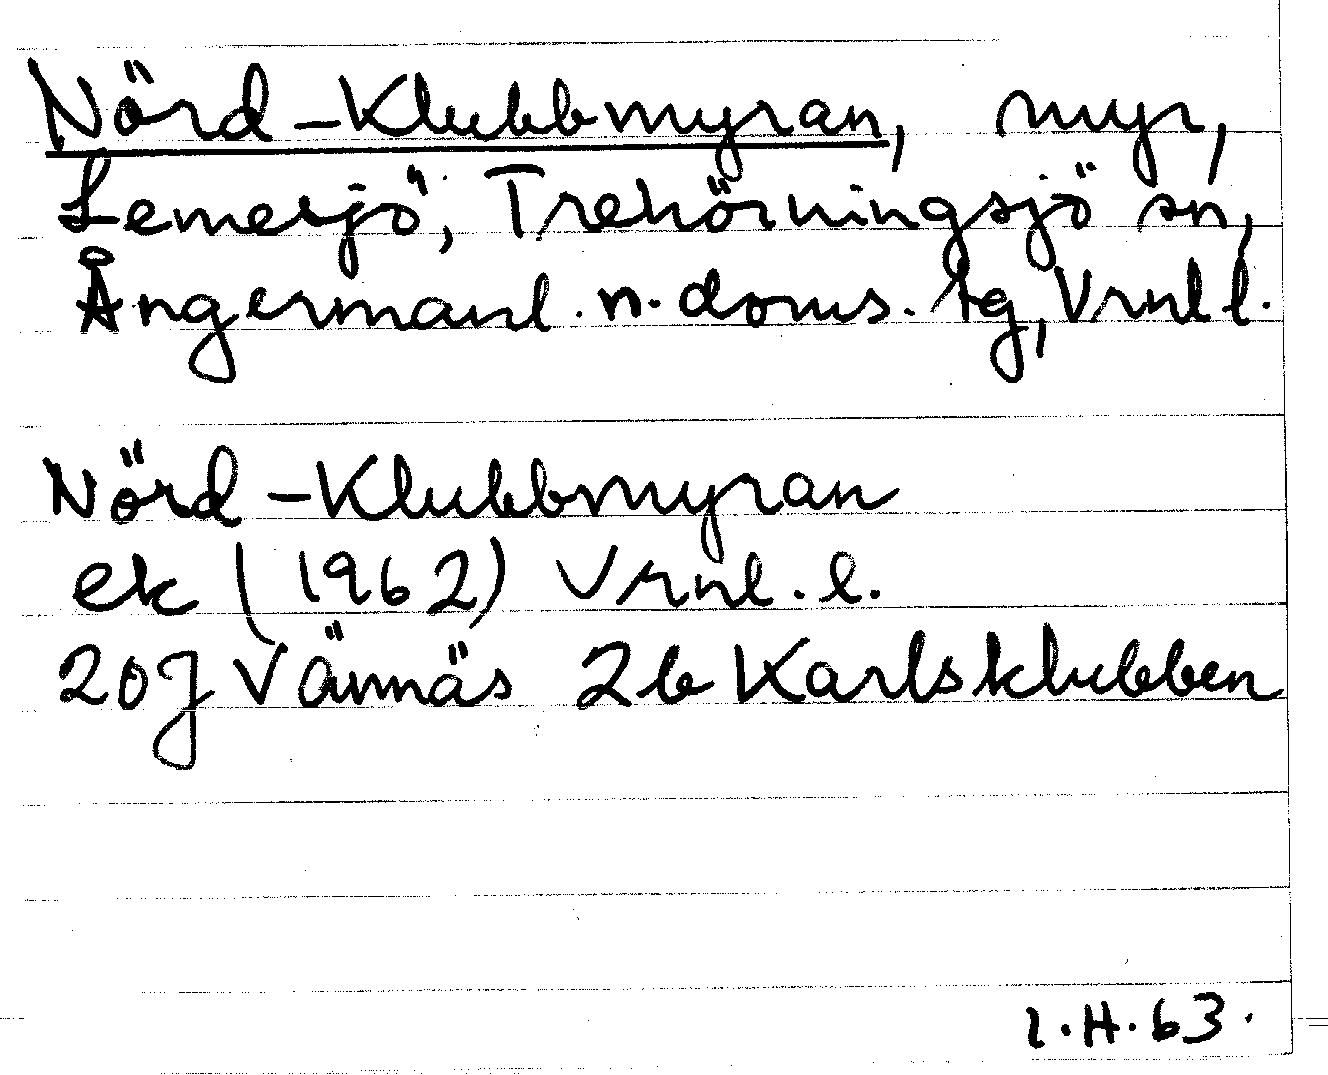 Nörd-Klubbmyran, myr,
Lemesjö, Trehörningsjö sn,
Ångermanl. n. doms. lg, Vrnl l.
Nörd-Klubbmyran
ek (1962) Vrnl. l.
20J Vännäs 2b Karlsklubben
I.H.63.